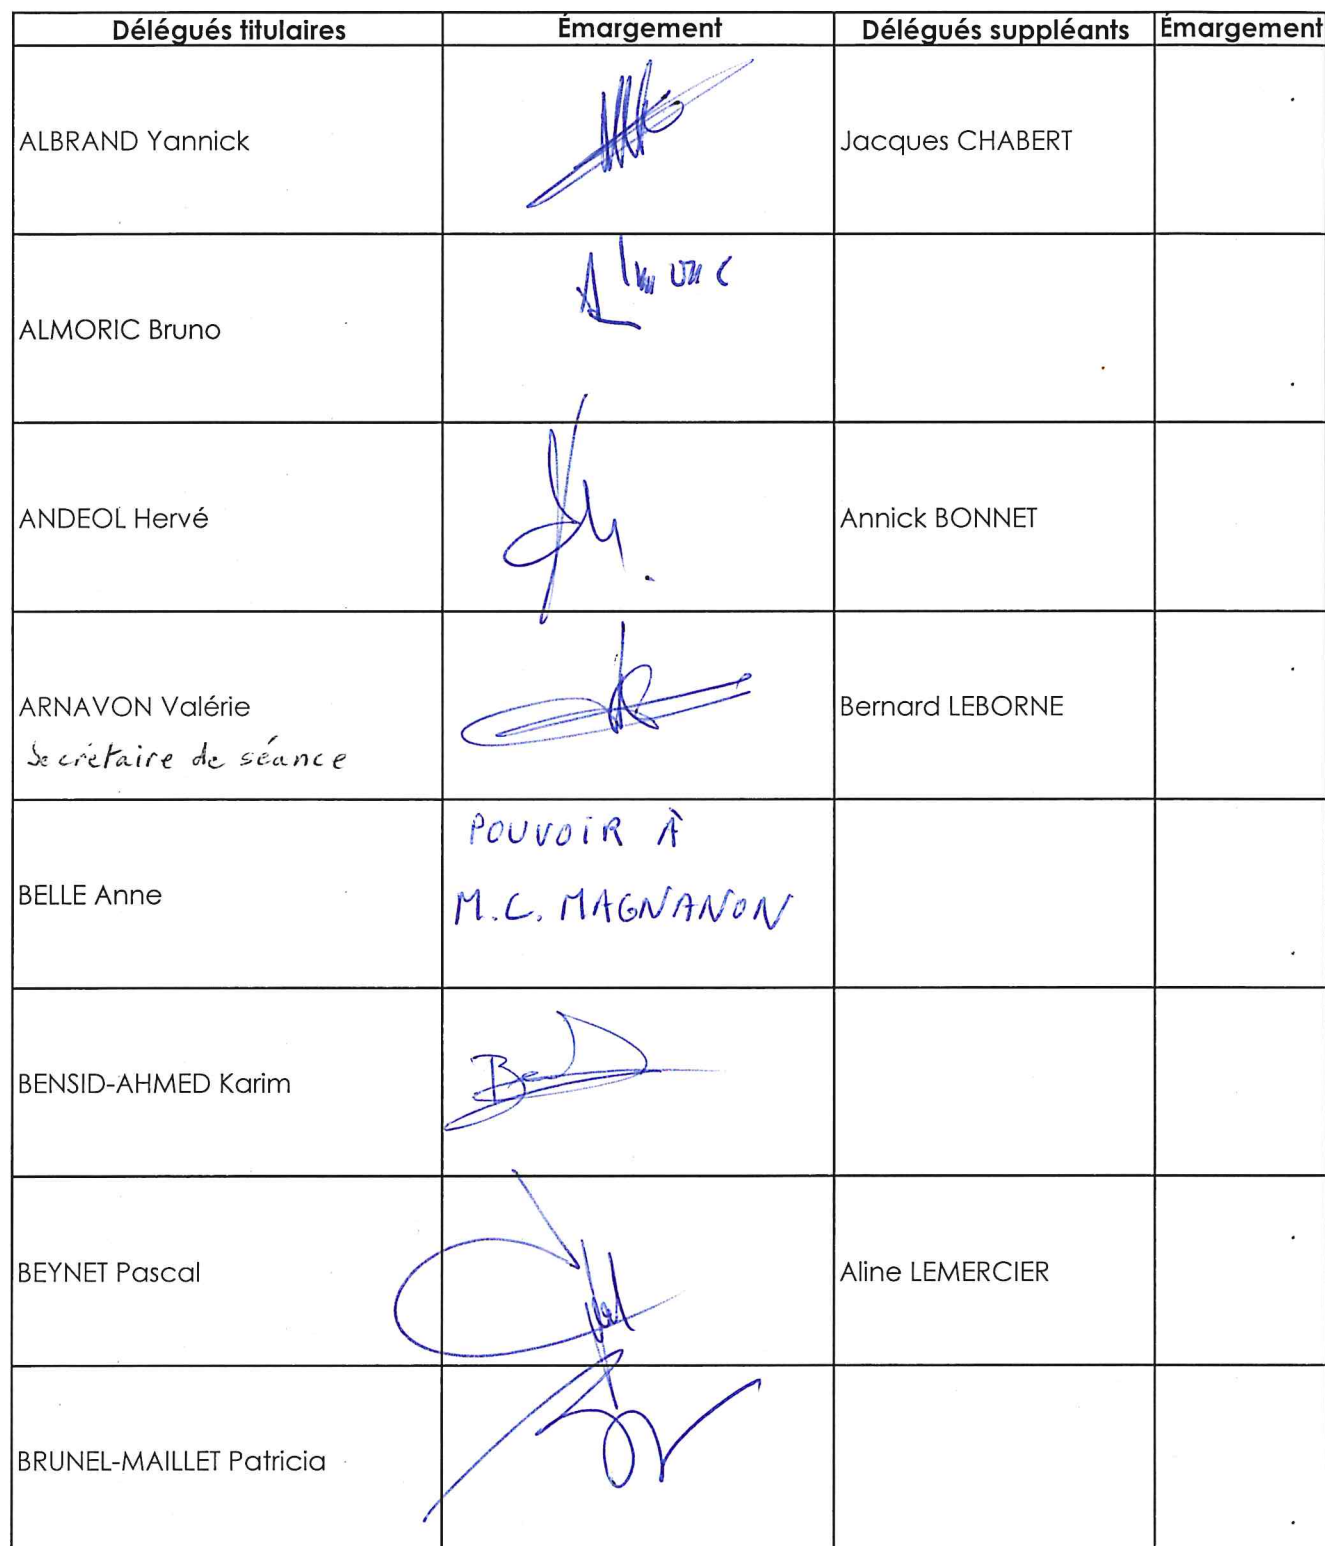 Délégués titulaires Émargement Délégués suppléants Émargement
ALBRAND Yannick Jacques CHABERT
ALMORIC Bruno Almoric
ANDEOL Hervé Annick BONNET
ARNAVON Valérie Bernard LEBORNE
Secrétaire de séance
BELLE Anne POUVOIR À
M.C. MAGNANON
BENSID-AHMED Karim
BEYNET Pascal Aline LEMERCIER
BRUNEL-MAILLET Patricia